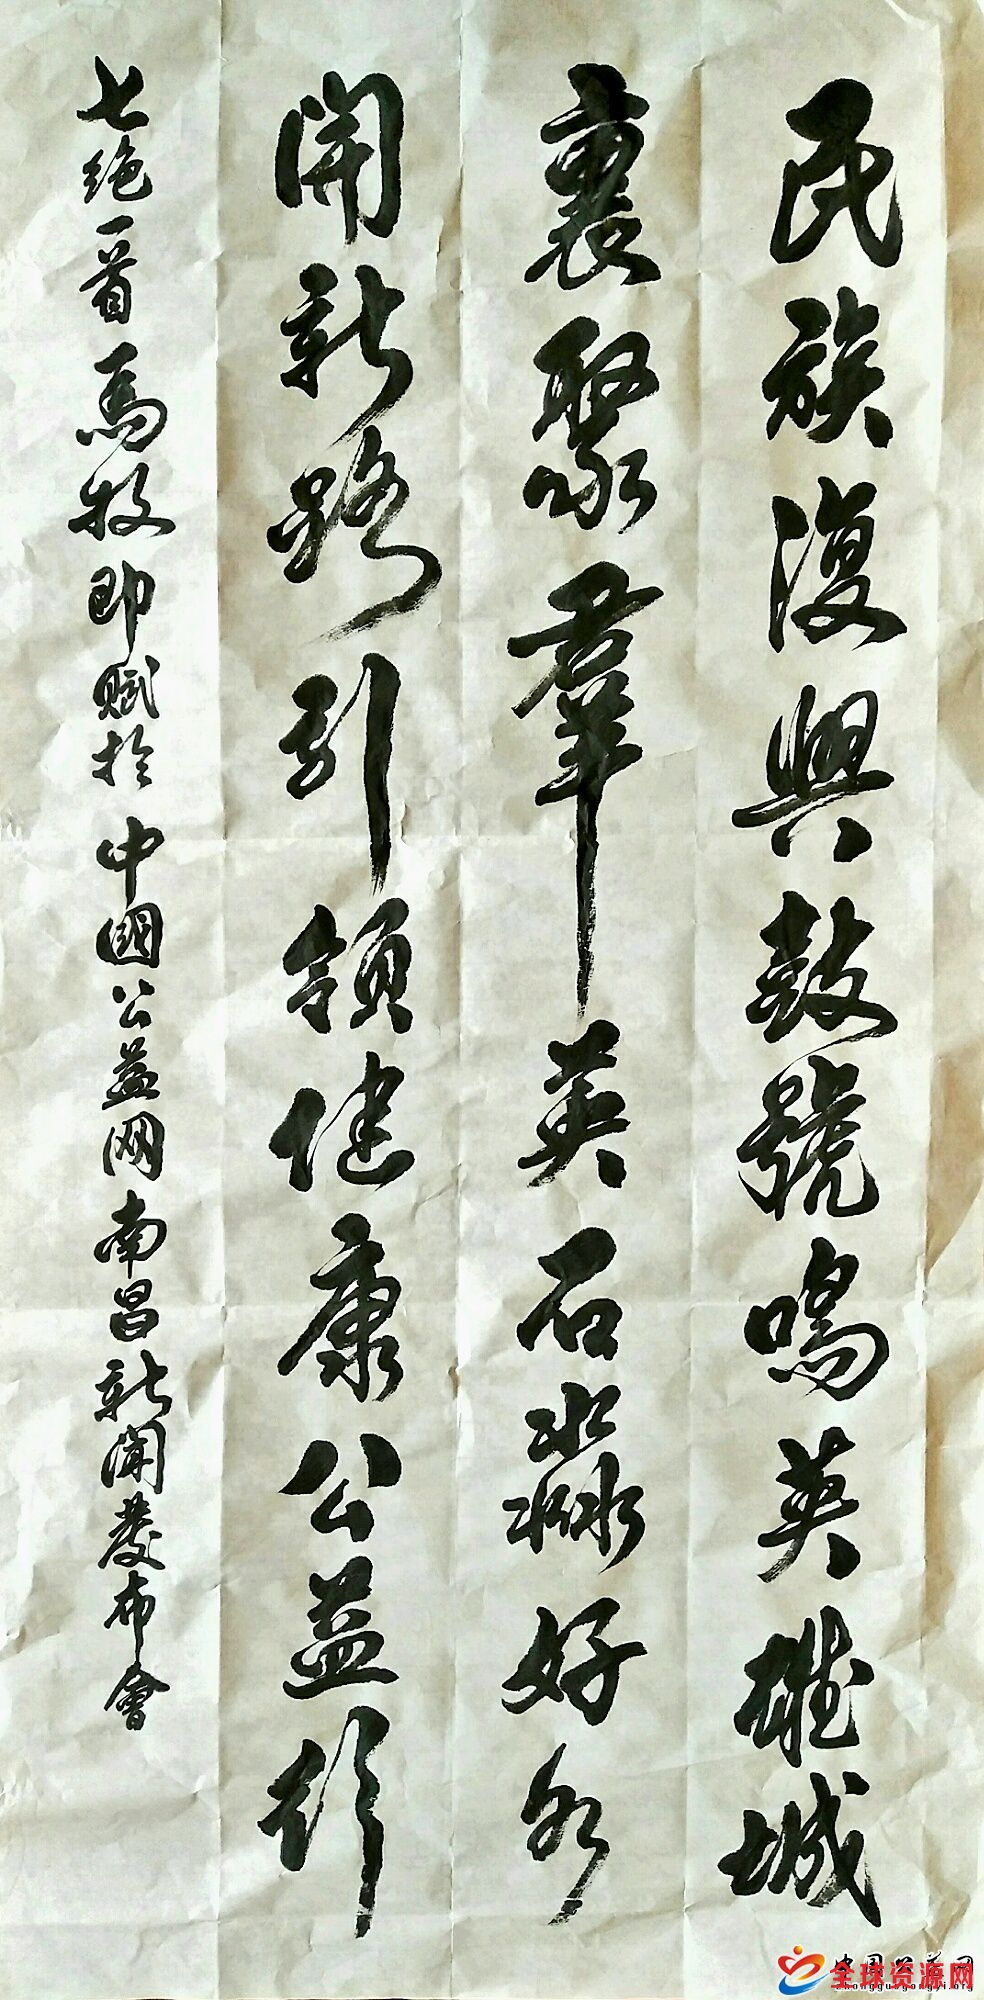 民族復興鼓號鳴英雄城
裏聚羣英石淼好水
開新路引領健康公益行
七绝一首馬牧即赋於中國公益网南昌新聞發布會
中国公益网
zhongguogongyi.org
全球资源网